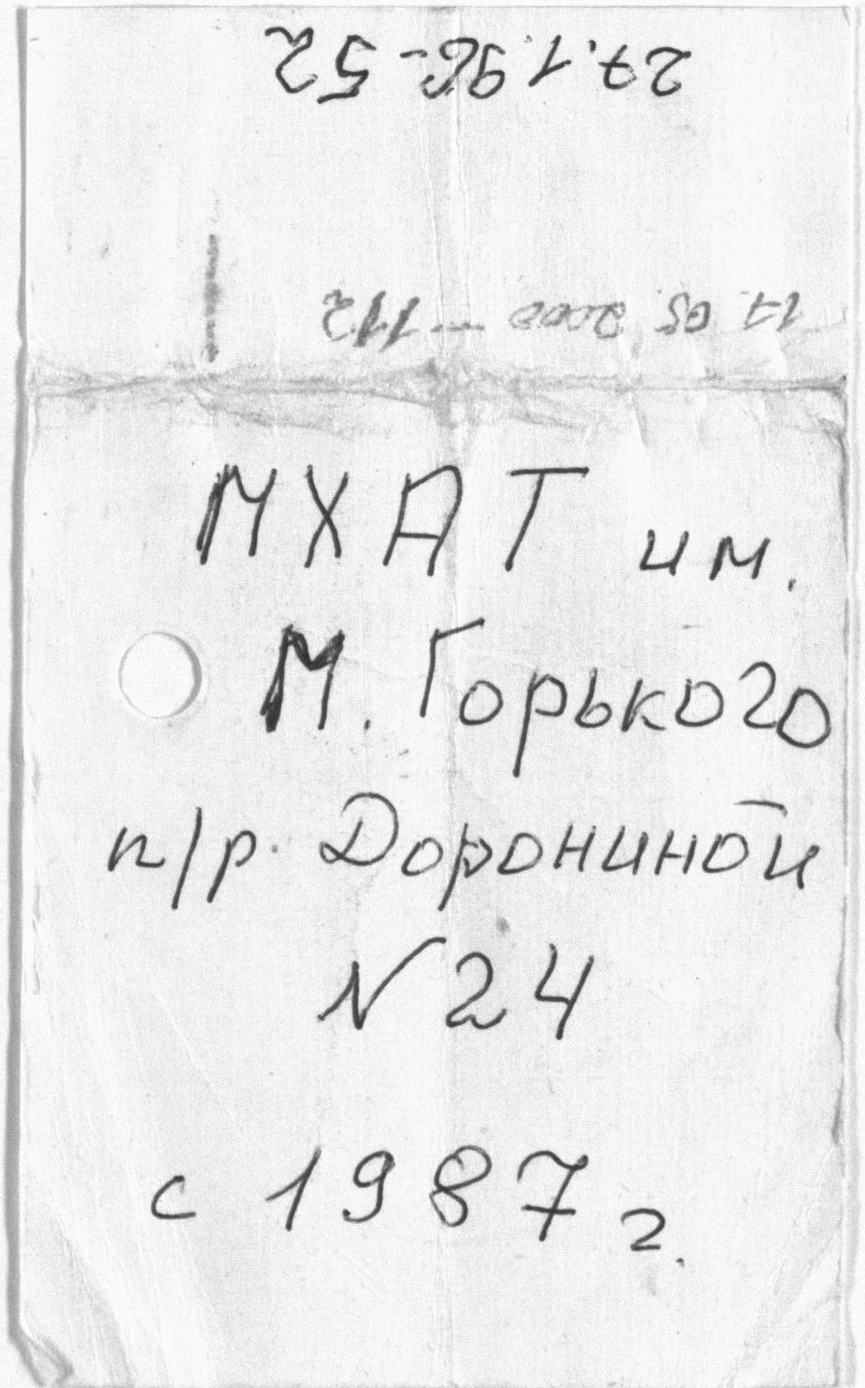 27.1.96-52
17 05 2000 — 112
МХАТ им.
М. Горького
п/р. Дорониной
N 24
с 1987 г.